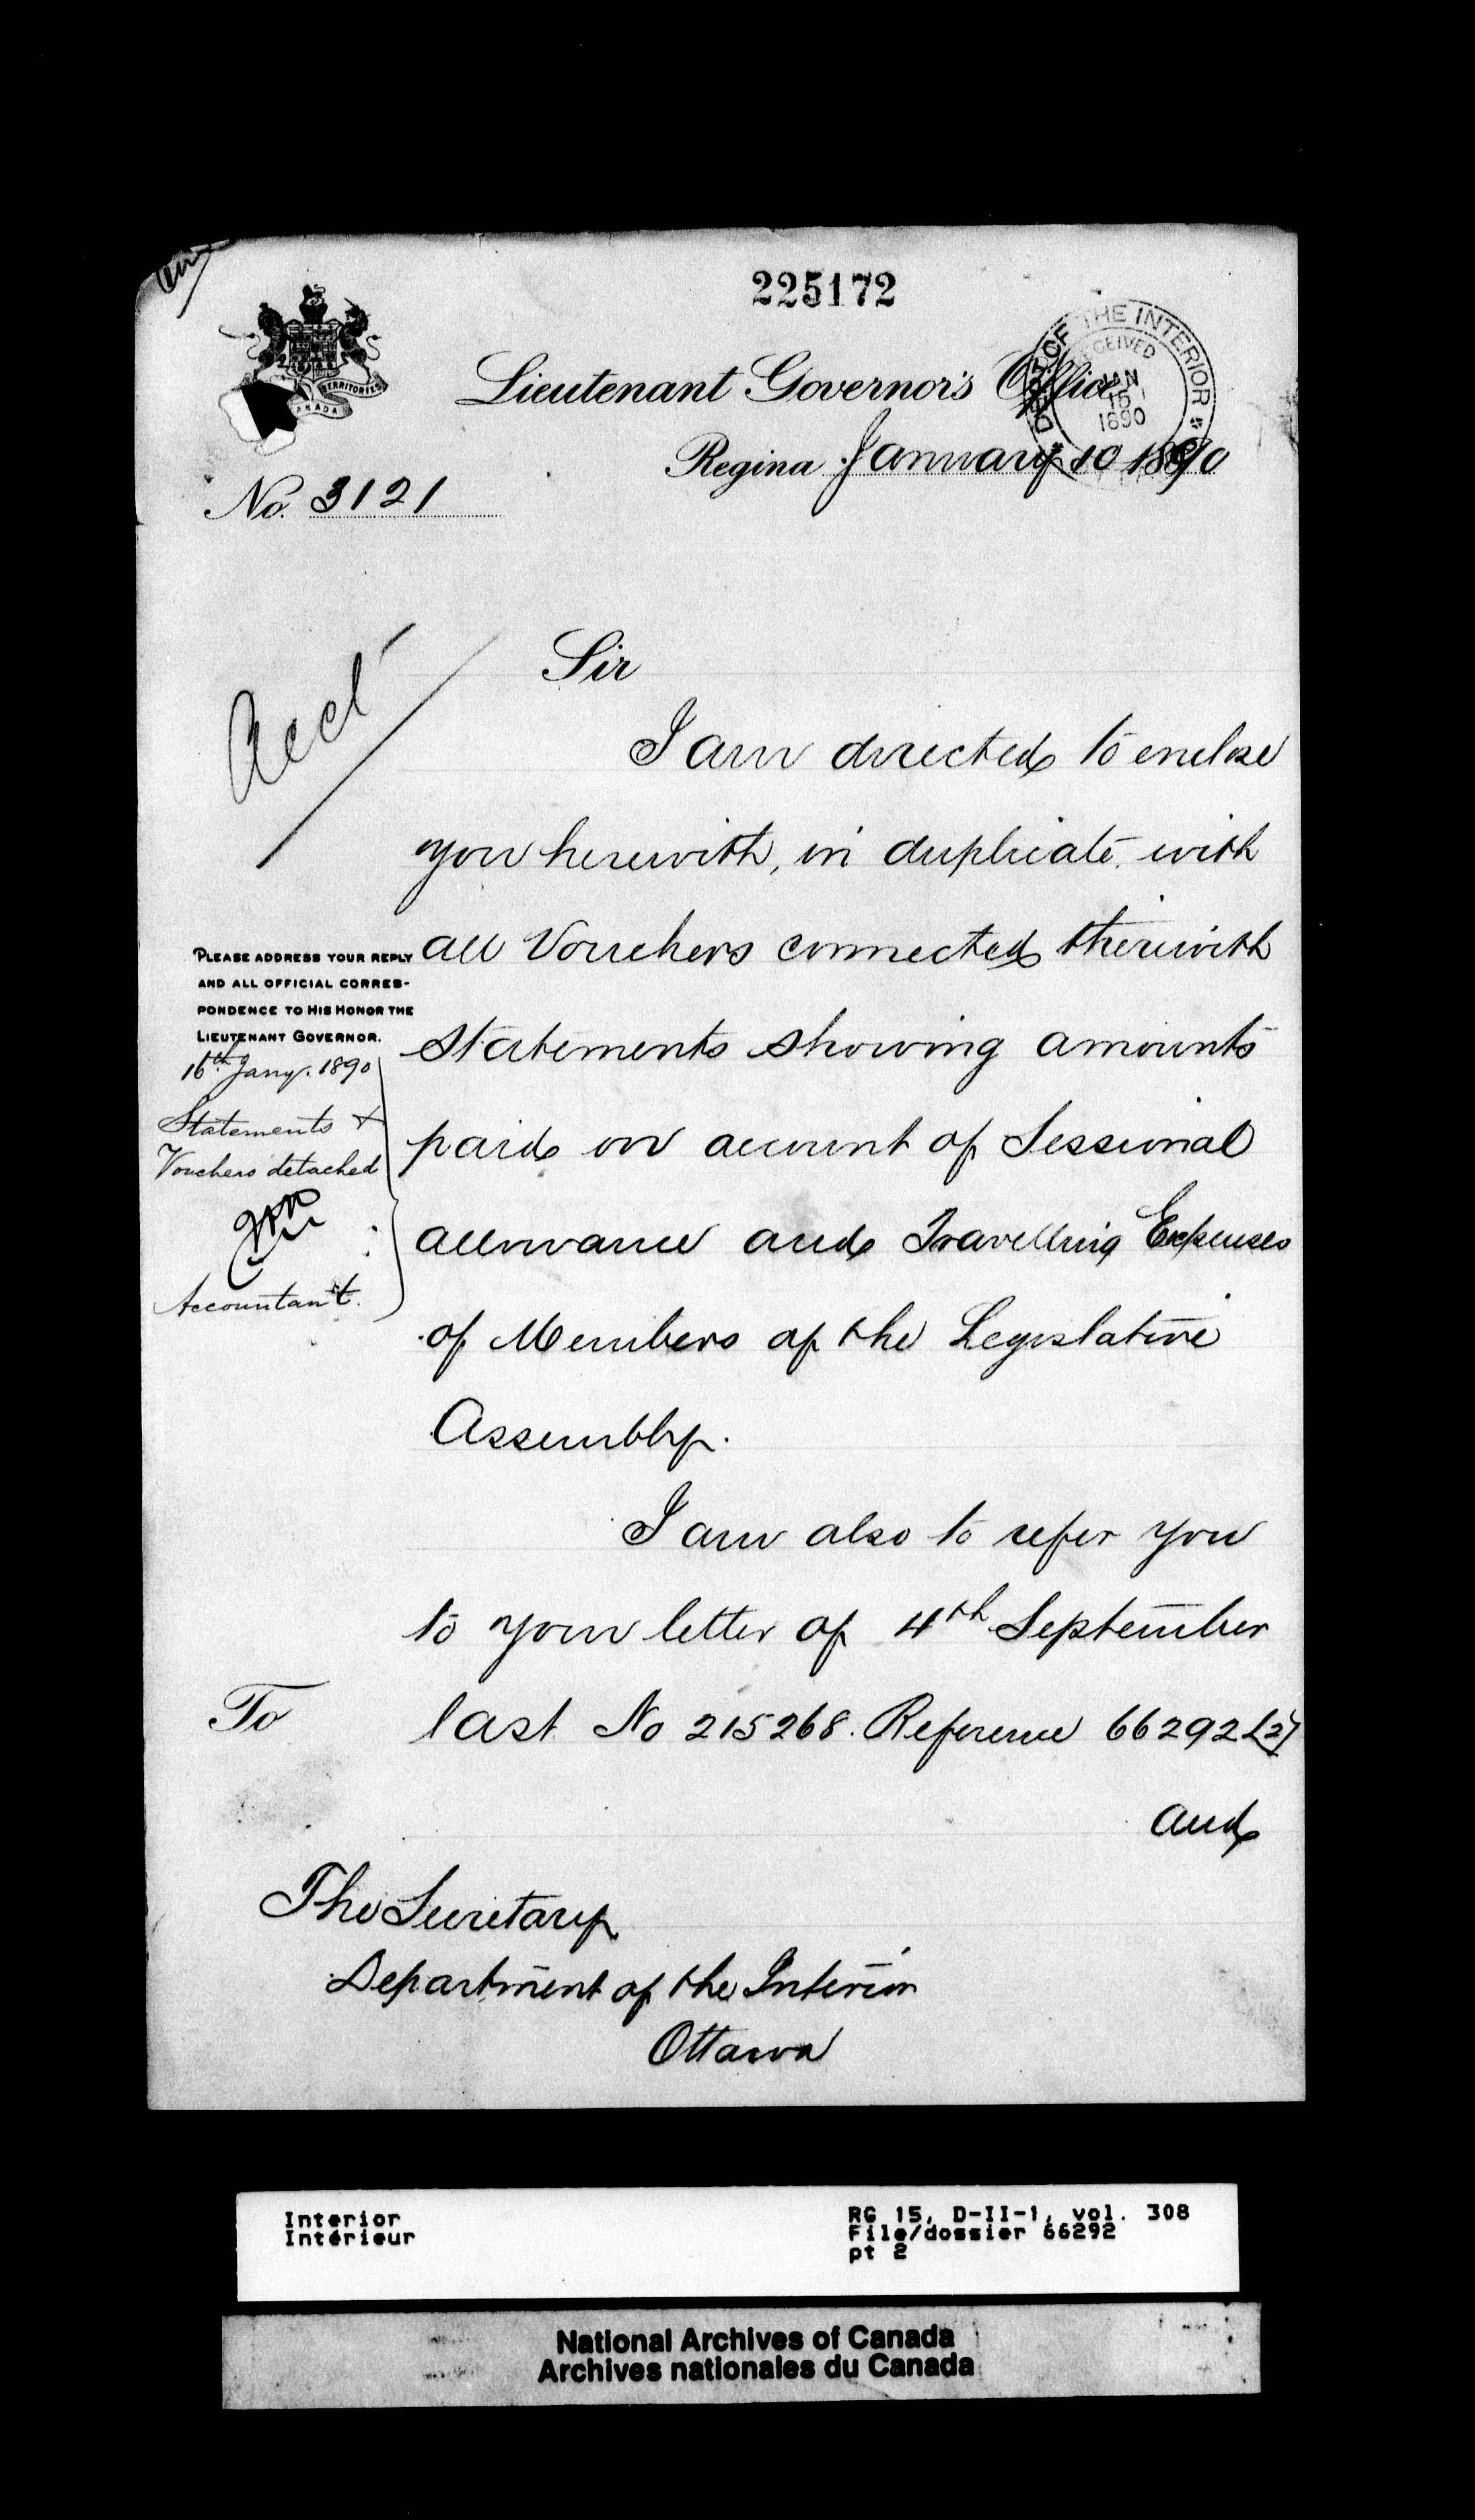 225172
TERRITORIES
CANADA
Lieutenant Governor's Office
DEPT OF THE INTERIOR
RECEIVED
JAN
15
1890
Regina January 10 1890
No. 3121
Acct
Sir
I am directed to enclose
you herewith, in duplicate, with
all Vouchers connected therewith
PLEASE ADDRESS YOUR REPLY
AND ALL OFFICIAL CORRES-
PONDENCE TO HIS HONOR THE
LIEUTENANT GOVERNOR.
statements showing amounts
paid on account of Sessional
allowance and Travelling Expenses
of Members of the Legislative
Assembly.
16th Jany. 1890
Statements &
Vouchers detached
Accountant.
I am also to refer you
to your letter of 4th September
last No 215268. Reference 66292 (2)
and
To
The Secretary
Department of the Interior
Ottawa
Interior
Intérieur
RG 15, D-II-1, vol. 308
File/dossier 66292
pt 2
National Archives of Canada
Archives nationales du Canada